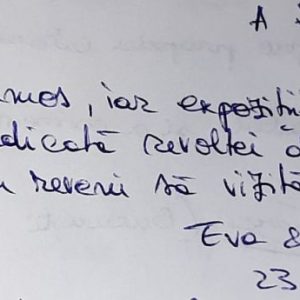 A
umos, iar expoziți
dicată revoltei d
reveni să vizită
Eva &
23